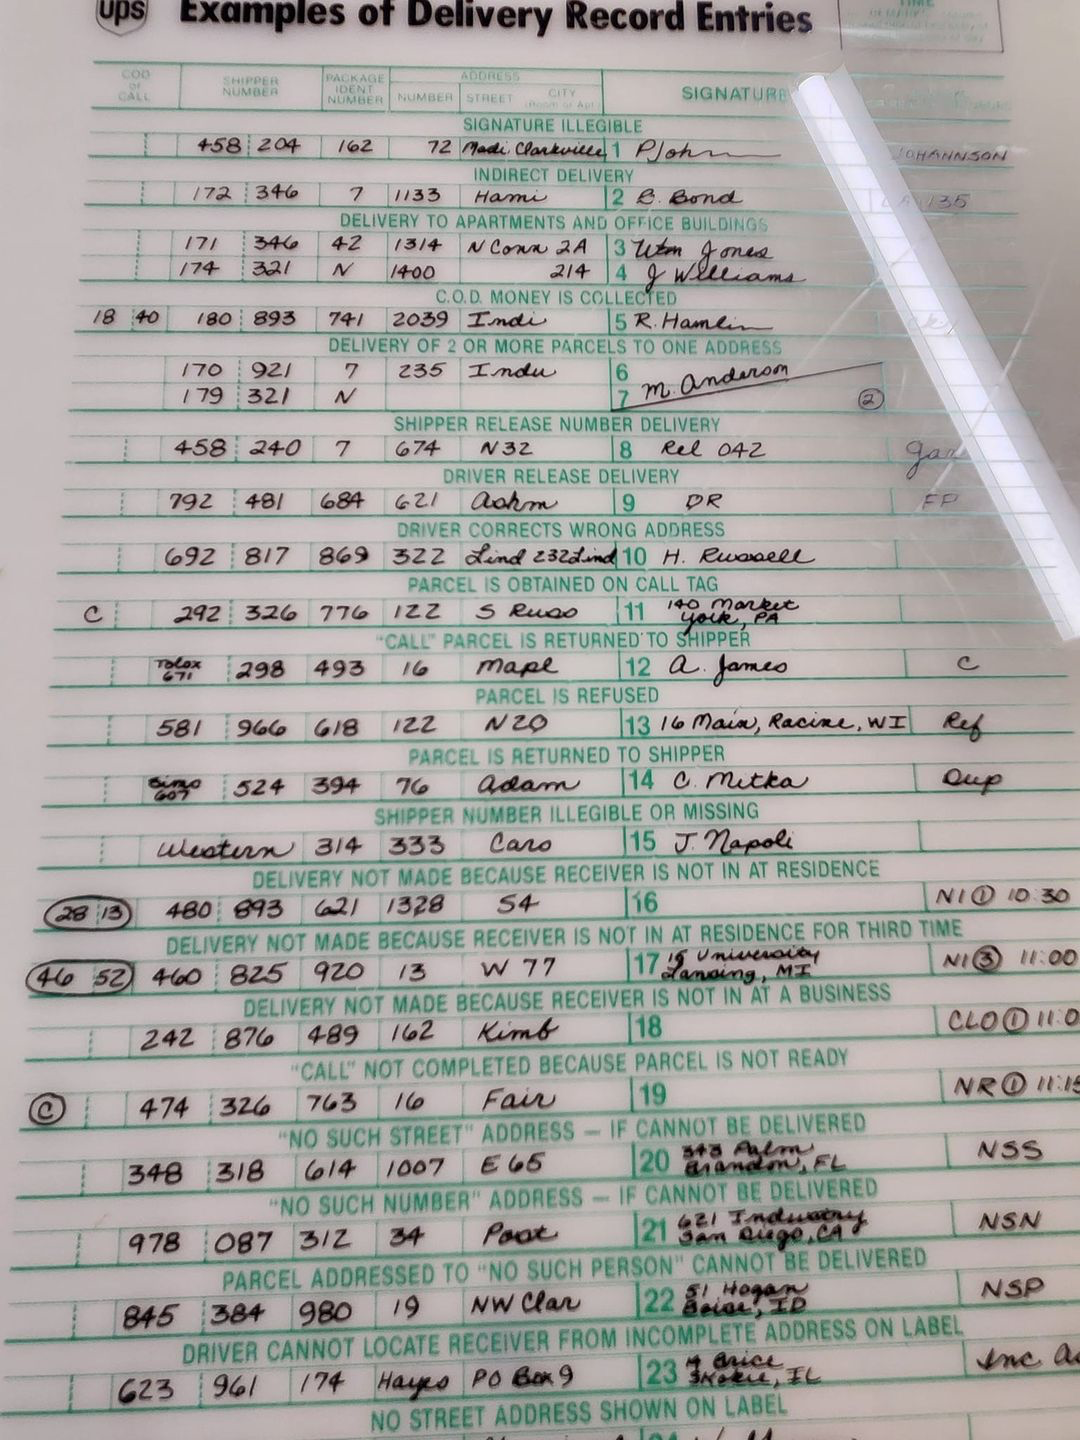 ups Examples of Delivery Record Entries TIME
COD or CALL SHIPPER NUMBER PACKAGE IDENT NUMBER ADDRESS NUMBER STREET CITY (Room or Apt.) SIGNATURE
SIGNATURE ILLEGIBLE
458 204 162 72 Madi Clarkville 1 P John JOHANNSON
INDIRECT DELIVERY
172 346 7 1133 Hami 2 B. Bond 1135
DELIVERY TO APARTMENTS AND OFFICE BUILDINGS
171 346 42 1314 N Conn 2A 3 Wm Jones
174 321 N 1400 214 4 J Williams
C.O.D. MONEY IS COLLECTED
18 40 180 893 741 2039 Indi 5 R. Hamlin
DELIVERY OF 2 OR MORE PARCELS TO ONE ADDRESS
170 921 7 235 Indu 6
179 321 N 7 M. Anderson 2
SHIPPER RELEASE NUMBER DELIVERY
458 240 7 674 N32 8 Rel 042
DRIVER RELEASE DELIVERY
792 481 684 621 Ashm 9 DR FP
DRIVER CORRECTS WRONG ADDRESS
692 817 869 322 Lind 232 Lind 10 H. Russell
PARCEL IS OBTAINED ON CALL TAG
C 292 326 776 122 S Russ 11 140 Market York, PA
"CALL" PARCEL IS RETURNED TO SHIPPER
671 298 493 16 Mapl 12 A. James C
PARCEL IS REFUSED
581 966 618 122 N20 13 16 Main, Racine, WI Ref
PARCEL IS RETURNED TO SHIPPER
607 524 394 76 Adam 14 C. Mitka Dup
SHIPPER NUMBER ILLEGIBLE OR MISSING
Western 314 333 Caro 15 J. Napoli
DELIVERY NOT MADE BECAUSE RECEIVER IS NOT IN AT RESIDENCE
28 13 480 893 621 1328 54 16 NI 1 10:30
DELIVERY NOT MADE BECAUSE RECEIVER IS NOT IN AT RESIDENCE FOR THIRD TIME
46 52 460 825 920 13 W 77 17 15 University Lansing, MI NI 3 11:00
DELIVERY NOT MADE BECAUSE RECEIVER IS NOT IN AT A BUSINESS
242 876 489 162 Kimb 18 CLO 1 11:0
"CALL" NOT COMPLETED BECAUSE PARCEL IS NOT READY
C 474 326 763 16 Fair 19 NR 1 11:15
"NO SUCH STREET" ADDRESS – IF CANNOT BE DELIVERED
348 318 614 1007 E 65 20 343 Palm Brandon, FL NSS
"NO SUCH NUMBER" ADDRESS – IF CANNOT BE DELIVERED
978 087 312 34 Post 21 621 Industry San Diego, CA NSN
PARCEL ADDRESSED TO "NO SUCH PERSON" CANNOT BE DELIVERED
845 384 980 19 NW Clar 22 51 Hogan Boise, ID NSP
DRIVER CANNOT LOCATE RECEIVER FROM INCOMPLETE ADDRESS ON LABEL
623 961 174 Hayes PO Box 9 23 Brice Skokie, IL Inc
NO STREET ADDRESS SHOWN ON LABEL